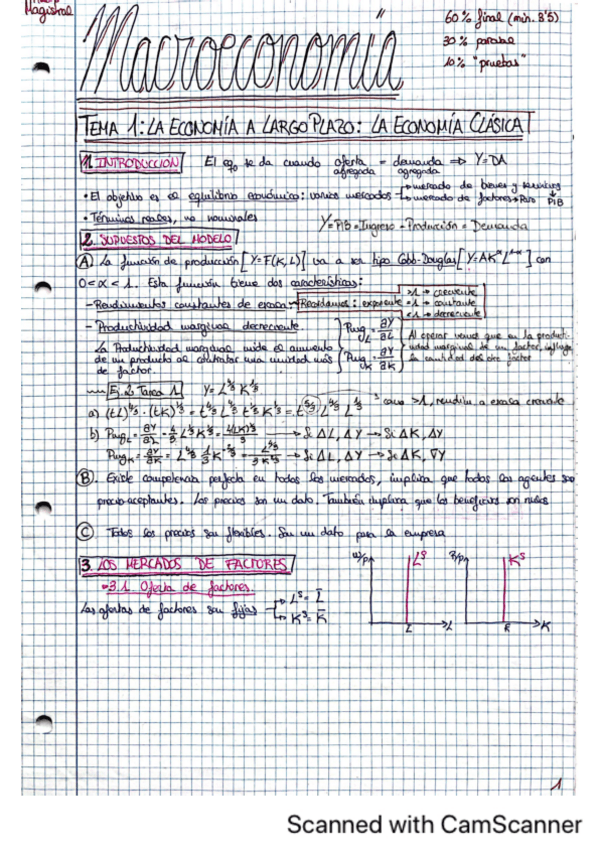 Magistral
Macroeconomía
60% final (min. 3'5)
30% parcial
10% "pruebas"
TEMA 1: LA ECONOMÍA A LARGO PLAZO: LA ECONOMÍA CLÁSICA
1. INTRODUCCIÓN El eqo se da cuando oferta agregada = demanda agregada => Y=DA
• El objetivo es el equilibrio económico: varios mercados → mercado de bienes y servicios
→ mercado de factores → Paro PIB
• Términos reales, no nominales Y=PIB=Ingreso=Producción=Demanda
2. SUPUESTOS DEL MODELO
A La función de producción [Y=F(K,L)] va a ser tipo Cobb-Douglas [Y=AK^α L^1-α] con
0<α<1. Esta función tiene dos características:
- Rendimientos constantes de escala. Recordamos: exponente >1 → creciente
=1 → constante
<1 → decreciente
- Productividad marginal decreciente.
La Productividad marginal mide el aumento
de un producto al contratar una unidad más
de factor.
PmgL = ∂Y/∂L
PmgK = ∂Y/∂K
Al operar vemos que en la producti-
vidad marginal de un factor, influye
la cantidad del otro factor
Ej. 2 Tarea 1 Y= L^4/3 K^1/3
a) (tL)^4/3 · (tK)^1/3 = t^4/3 L^4/3 t^1/3 K^1/3 = t^5/3 L^4/3 L^1/3 como >1, rendim. a escala creciente
b) PmgL = ∂Y/∂L = 4/3 L^1/3 K^1/3 = 4(LK)^1/3/3 → Si ΔL, ΔY → Si ΔK, ΔY
PmgK = ∂Y/∂K = L^4/3 1/3 K^-2/3 = L^4/3/3K^2/3 → Si ΔL, ΔY → Si ΔK, ∇Y
B. Existe competencia perfecta en todos los mercados, implica que todos los agentes son
precio-aceptantes. Los precios son un dato. También implica que los beneficios son nulos
C Todos los precios son flexibles. Son un dato para la empresa
3. LOS MERCADOS DE FACTORES
3.1. Oferta de factores.
Las ofertas de factores son fijas → L^S = L̄
→ K^S = K̄
w/p L^S L̄ L
R/p K^S K̄ K
1
Scanned with CamScanner